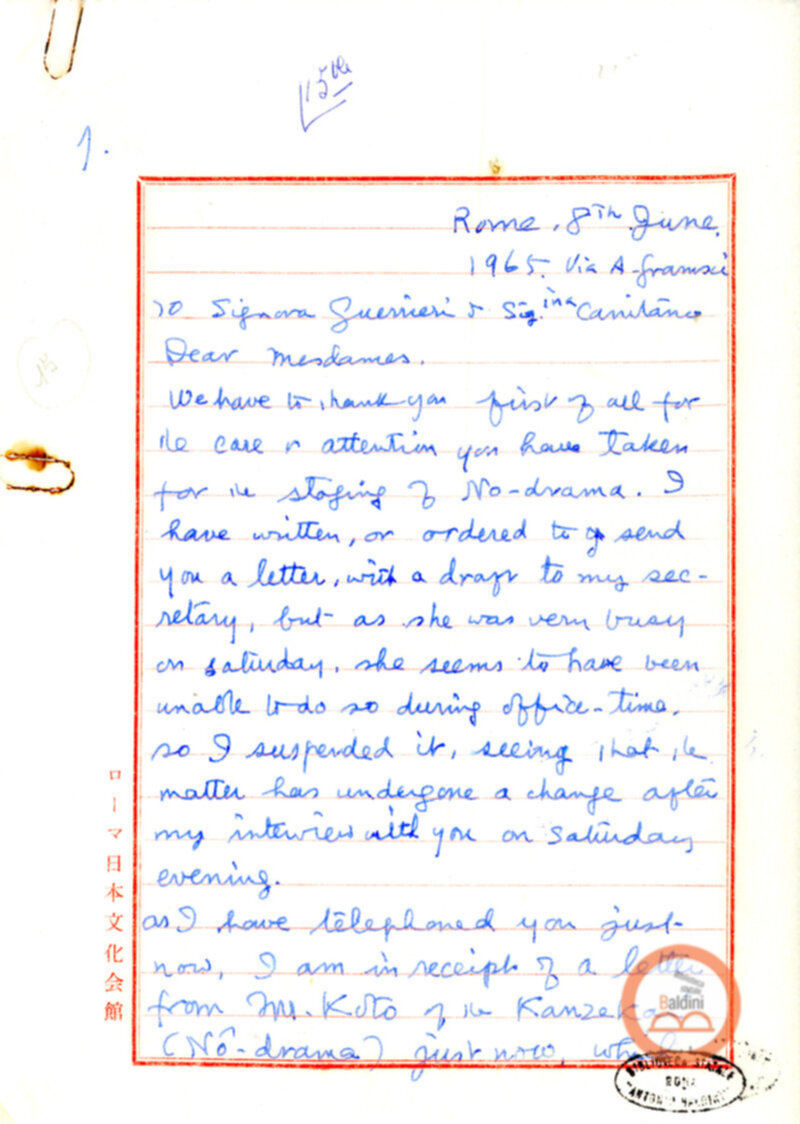 15th
1.
Rome, 8th June.
1965. Via A. Gramsci
To Signora Guerrieri & Sig.ina Canitano
Dear Mesdames.
We have to thank you first of all for
the care & attention you have taken
for the staging of No-drama. I
have written, or ordered to send
you a letter, with a draft to my sec-
retary, but as she was very busy
on Saturday, she seems to have been
unable to do so during office-time.
so I suspended it, seeing that the
matter has undergone a change after
my interview with you on Saturday
evening.
as I have telephoned you just
now, I am in receipt of a letter
from Mr. Koto of the Kanzekai
(Nô-drama) just now, which
ローマ日本文化会館
15
Biblioteca statale
Baldini
BIBLIOTECA STATALE
ROMA
"ANTONIO BALDINI"